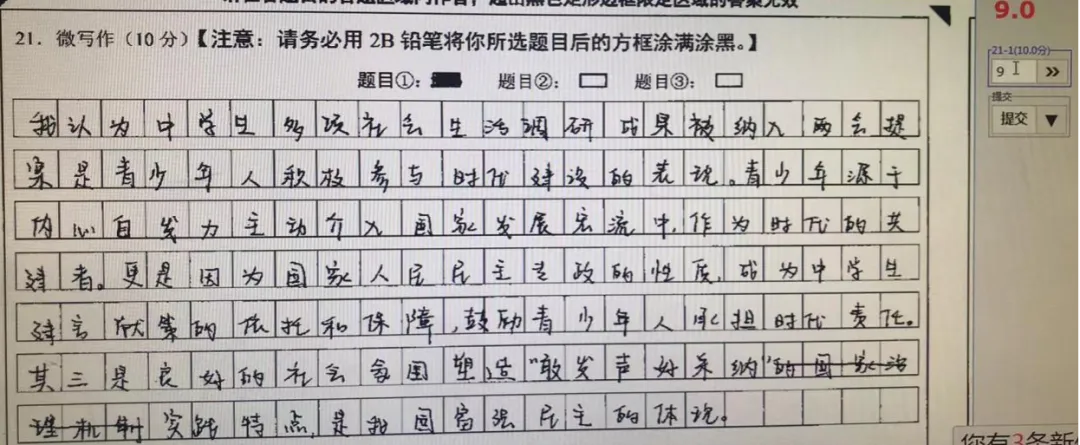 请在各题目的答题区域内作答，超出黑色矩形边框限定区域的答案无效
9.0
21. 微写作（10 分）【注意：请务必用 2B 铅笔将你所选题目后的方框涂满涂黑。】
21-1(10.0分)
9 »
题目①： 题目②： 题目③：
提交
提交 ▼
我认为中学生多项社会生活调研成果被纳入两会提
案是青少年人积极参与时代建设的表现。青少年源于
内心自发力主动介入国家发展宏流中，作为时代的共
建者。更是因为国家人民民主专政的性质，成为中学生
建言献策的依托和保障，鼓励青少年人承担时代责任。
其三是良好的社会氛围塑造“敢发声好采纳”的国家治
理机制实践特点，是我国富强民主的体现。
你有3条新